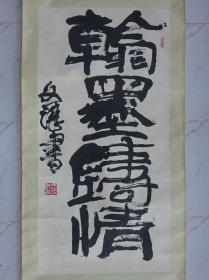 翰墨鑄情
文 書